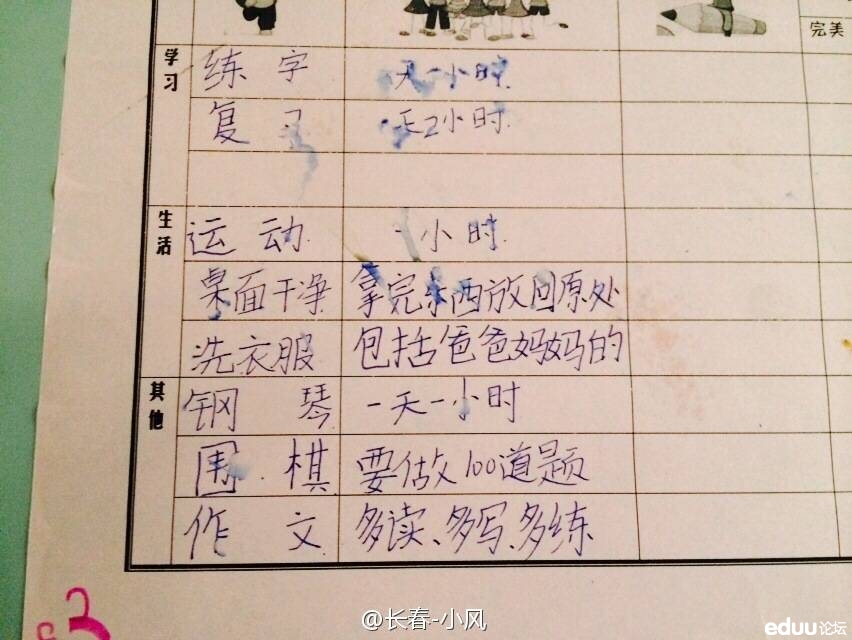 完美
学习
练字 一天一小时
复习 一天2小时
生活
运动 一小时
桌面干净 拿完东西放回原处
洗衣服 包括爸爸妈妈的
其他
钢琴 一天一小时
围棋 要做100道题
作文 多读、多写、多练
@长春-小风
eduu论坛